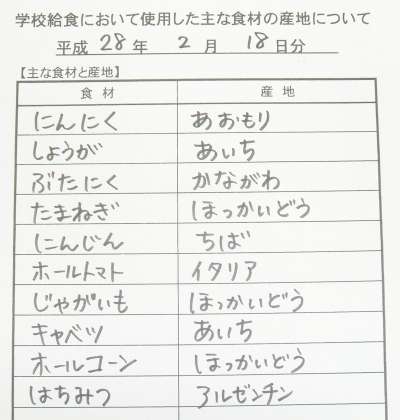 学校給食において使用した主な食材の産地について
平成 28 年 2 月 18 日分
【主な食材と産地】
食材 産地
にんにく あおもり
しょうが あいち
ぶたにく かながわ
たまねぎ ほっかいどう
にんじん ちば
ホールトマト イタリア
じゃがいも ほっかいどう
キャベツ あいち
ホールコーン ほっかいどう
はちみつ アルゼンチン